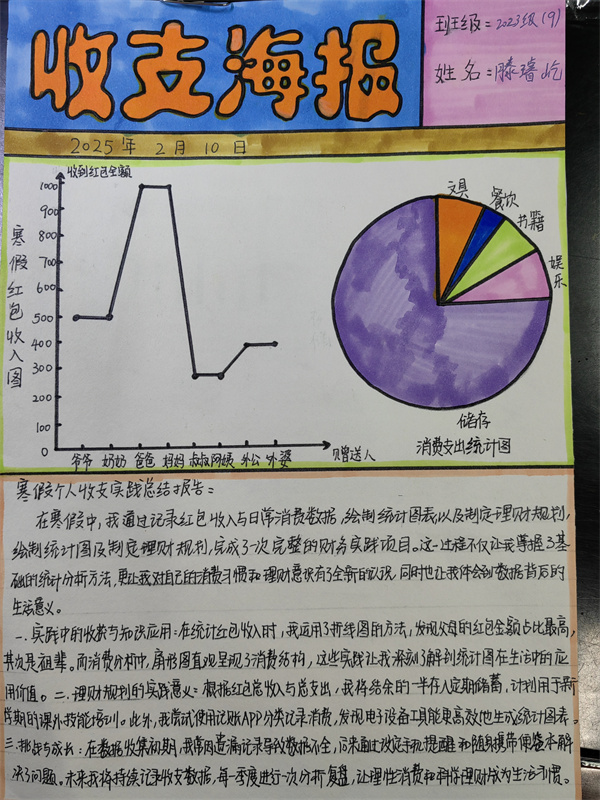 收支海报
班级=2023级(9)
姓名=滕璿屹
2025年 2月 10日
收到红包金额
寒假红包收入图
1000
900
800
700
600
500
400
300
200
100
0
爷爷 奶奶 爸爸 妈妈 叔叔 阿姨 外公 外婆
赠送人
文具
餐饮
书籍
娱乐
储存
消费支出统计图
寒假个人收支实践总结报告:
在寒假中,我通过记录红包收入与日常消费数据,绘制统计图表以及制定理财规划,
绘制统计图及制定理财规划,完成了一次完整的财务实践项目。这一过程不仅让我掌握了基
础的统计分析方法,更让我对自己的消费习惯和理财意识有了全新的认识,同时也让我体会到数据背后的
生活意义。
一.实践中的收获与知识应用:在统计红包收入时,我运用了折线图的方法,发现父母的红包金额占比最高,
其次是祖辈。而消费分析中,扇形图直观呈现了消费结构,这些实践让我深刻了解到统计图在生活中的应
用价值。二.理财规划的实践意义:根据红包总收入与总支出,我将结余的一半存入定期储蓄,计划用于新
学期的课外技能培训。此外,我尝试使用记账APP分类记录消费,发现电子设备工具能更高效地生成统计图表。
三.挑战与成长:在数据收集初期,我常因遗漏记录导致数据不全,后来通过设定手机提醒和随身携带便签本解
决了问题。未来我将持续记录收支数据,每一季度进行一次分析复盘,让理性消费和科学理财成为生活习惯。